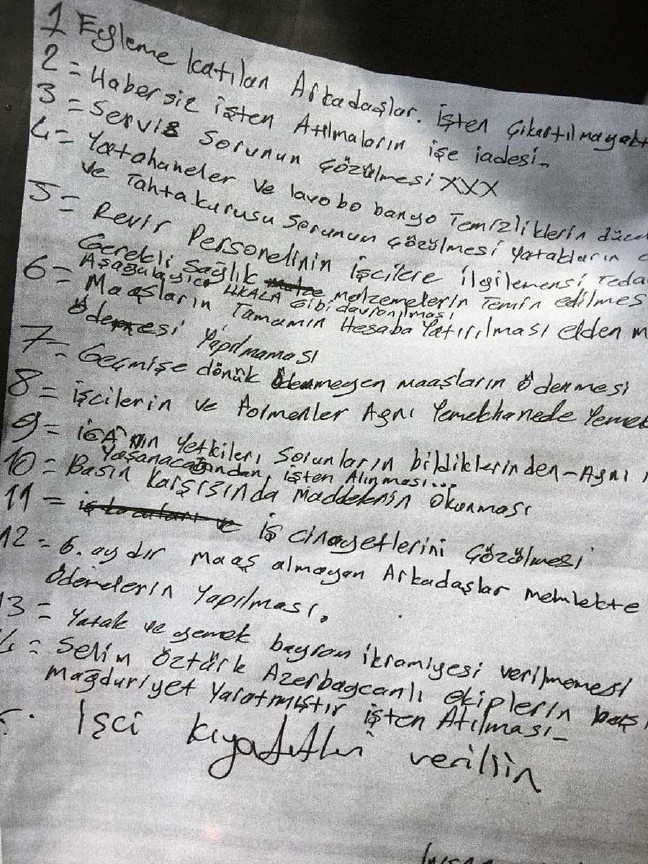 1 Eyleme katılan Arkadaşlar. işten Çıkartılmayak
2 = Habersiz işten Atılmaların işe iadesi-
3 = Servis Sorunun Çözülmesi XXX
4 = Yatahaneler ve lavobo banyo Temizliklerin düze
ve Tahtakurusu Sorunun çözülmesi yatakların
5 = Revir Personelinin İşcilere ilgilemensi, Teda
Gerekli Sağlık melzemelerin Temin edilmes
Aşağalayıcı Gibi davranılması
6 = Maaşların Tamamın Hesaba Yatırılması elden m
Ödemesi Yapılmaması
7 = Geçmişe dönük ödenmeyen maaşların ödenmesi
8 = işcilerin ve Formenler Aynı Yemekhanede Yemek
9 = iGA'nın yetkileri Sorunların bildiklerinden - Aynı
Yaşanacağından işten Alınması...
10 = Basın karşısında Maddelerin Okunması
11 = iş cinayetlerini Çözülmesi
12 = 6. aydır maaş almayan Arkadaşlar memlekte
Ödemelerin Yapılması.
13 = Yatak ve yemek bayram ikramiyesi verilmemesi
= Selim Öztürk Azerbaycanlı ekiplerin
mağduriyet Yaratmıştır işten Atılması-
İşci kıyafetleri verilsin